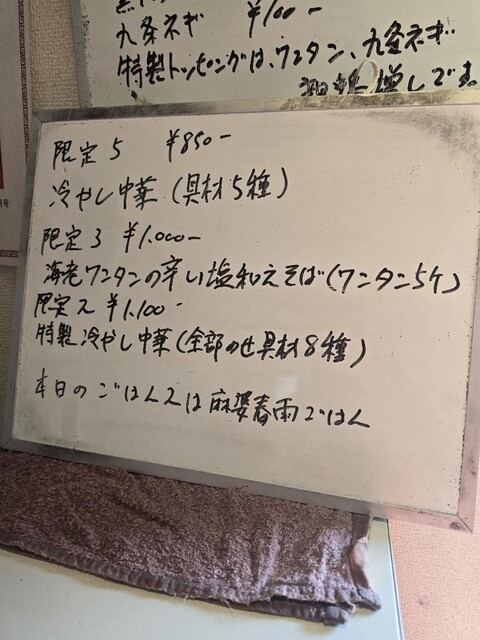 九条ネギ ¥100-
特製トッピングは、ワンタン、九条ネギ、
増しです。
限定5 ¥850-
冷やし中華(具材5種)
限定3 ¥1.000-
海老ワンタンの辛い塩和えそば(ワンタン5ケ)
限定2 ¥1.100-
特製冷やし中華(全部のせ具材8種)
本日のごはんスは麻婆春雨ごはん